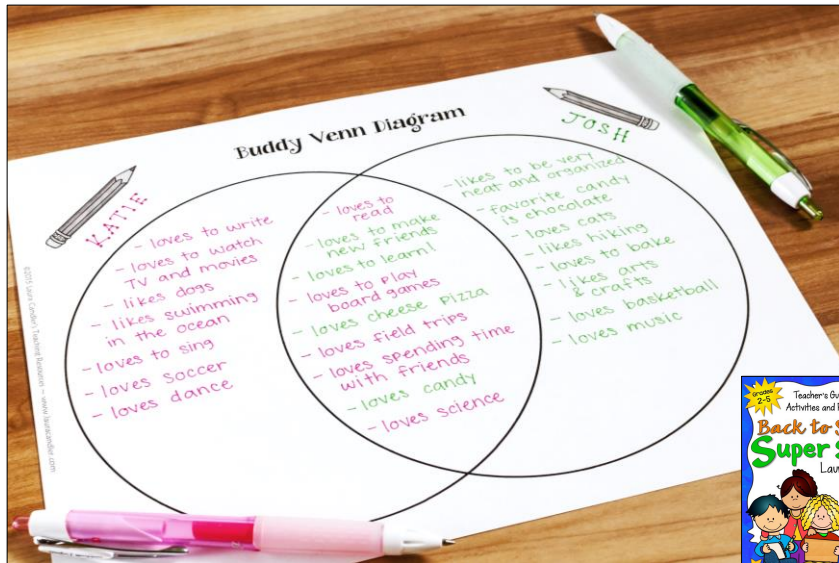 Buddy Venn Diagram
KATIE
- loves to write
- loves to watch
TV and movies
- likes dogs
- likes swimming
in the ocean
- loves to sing
- loves soccer
- loves dance
- loves to
read
- loves to make
new friends
- loves to learn!
- loves to play
board games
- loves cheese pizza
- loves field trips
- loves spending time
with friends
- loves candy
- loves science
JOSH
- likes to be very
neat and organized
- favorite candy
is chocolate
- loves cats
- likes hiking
- loves to bake
- likes arts
& crafts
- loves basketball
- loves music
©2015 Laura Candler's Teaching Resources ~ www.lauracandler.com
grades
2-5
Teacher's Gu
Activities and
Back to S
Super S
Lau